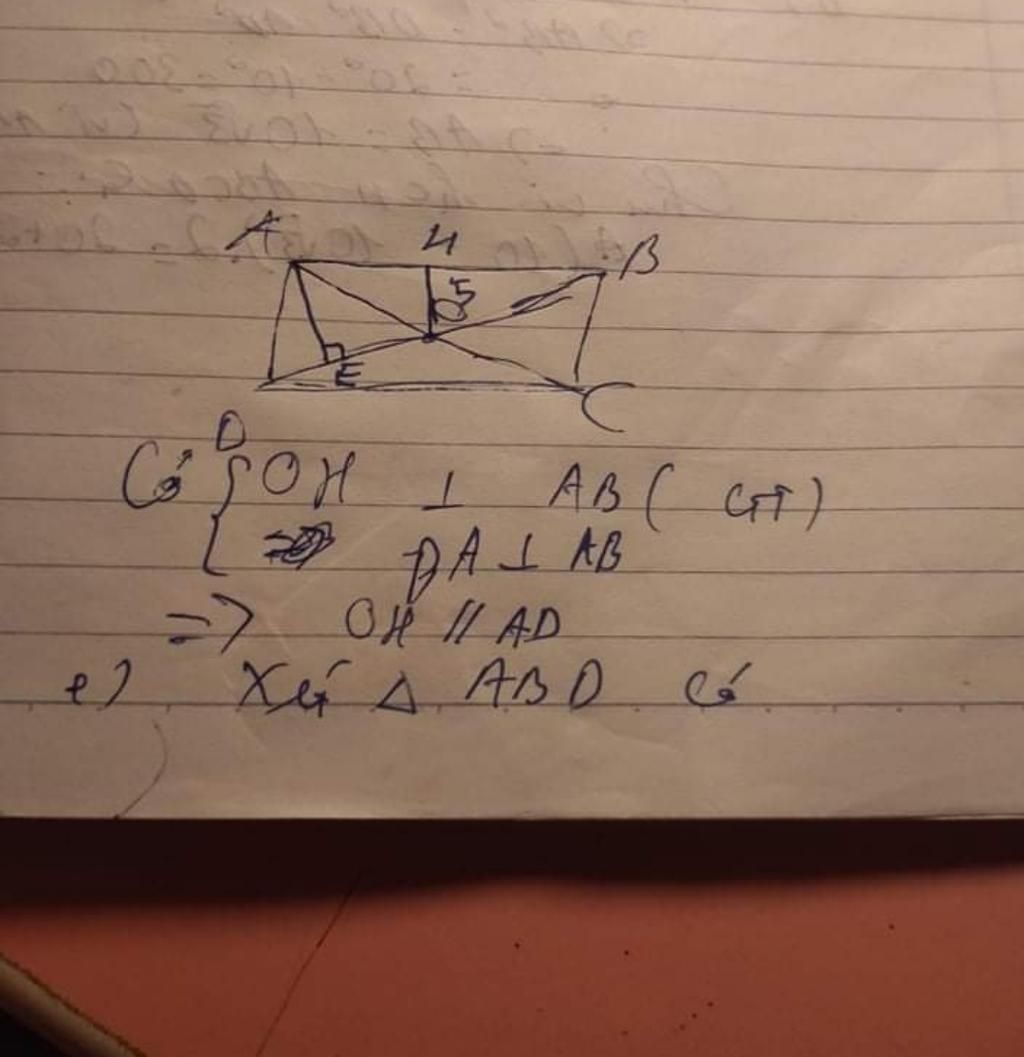 A H B
5
O
E
D C
Có { OH ⊥ AB ( GT )
DA ⊥ AB
=> OH // AD
e) Xét Δ ABD có